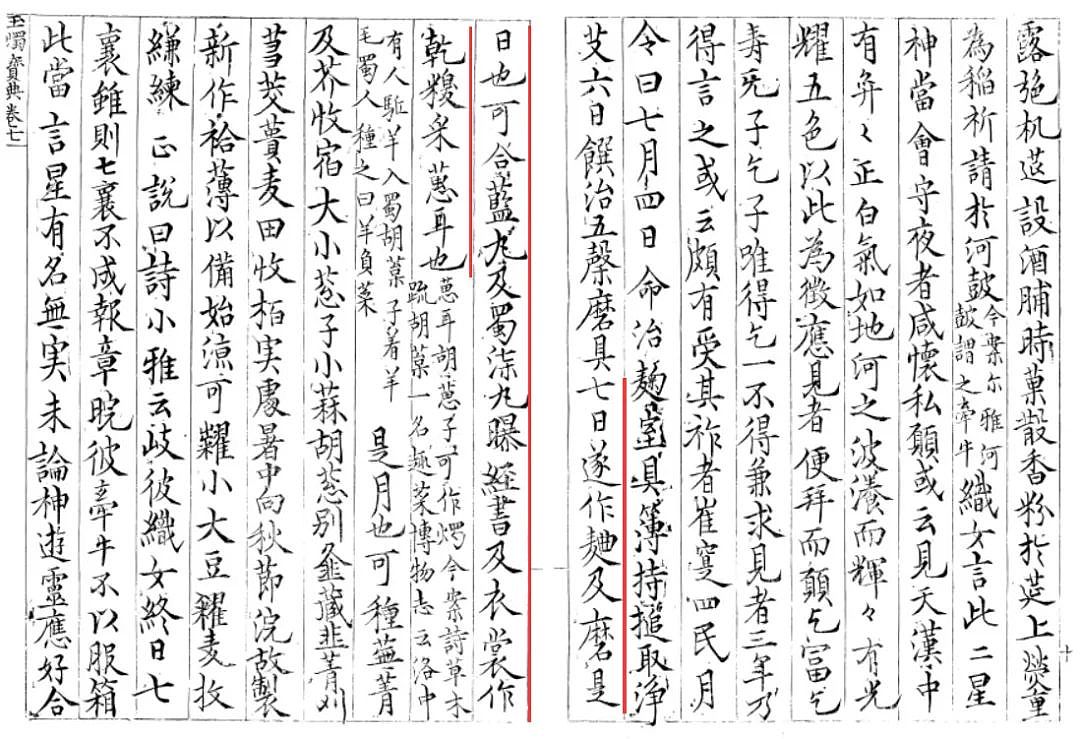 露施机莚設酒脯時菓散香粉於莚上熒重
為稲祈請於河鼓今案尓雅河鼓謂之牽牛織女言此二星
神當會守夜者咸懐私願或云見天漢中
有弈〻正白氣如地河之波瀁而輝々有光
耀五色以此為徴應見者便拜而願乞富乞
寿旡子乞子唯得乞一不得兼求見者三年乃
得言之或云頗有受其祚者崔寔四民月
令曰七月四日命治麹室具簿持搥取浄
艾六日饌治五糓磨具七日遂作麹及磨是
日也可合藍丸及蜀漆丸曝経書及衣裳作
乾糗采蕙耳也葸耳胡葸子可作燭今案詩草木
疏胡葈一名趣菜博物志云洛中
有人駈羊入蜀胡葈子着羊
毛蜀人種之曰羊負菜是月也可種蕪菁
及芥收宿大小葱子小蒜胡葱别韰藏韭菁刈
芻茭蕡麦田收栢実處暑中向秋節浣故製
新作袷薄以備始涼可糶小大豆糴麦收
縑練正説曰詩小雅云歧彼織女終日七
襄雖則七襄不成報章睆彼牽牛不以服箱
此當言星有名無実未論神遊靈應好合
玉燭寶典卷七
十